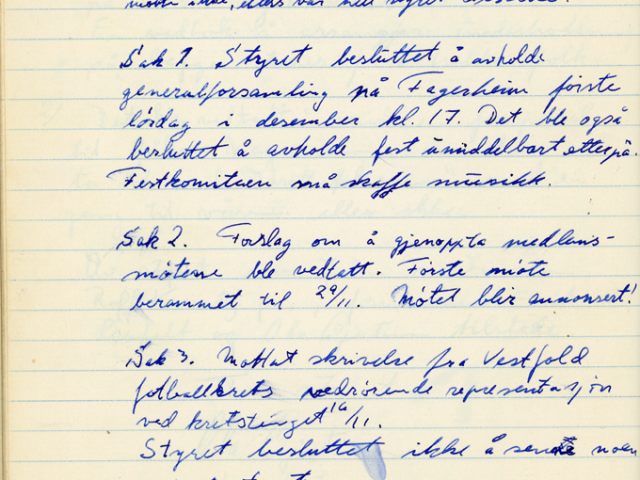 møtte ikke, ellers var hele styret
Sak 1. Styret besluttet å avholde
generalforsamling på Fagerheim første
lørdag i desember kl. 17. Det ble også
besluttet å avholde fest umiddelbart etterpå.
Festkomiteen må skaffe musikk.
Sak 2. Forslag om å gjenoppta medlems-
møtene ble vedtatt. Første møte
berammet til 29/11. Møtet blir annonsert!
Sak 3. Mottat skrivelse fra Vestfold
fotballkrets vedrørende representasjon
ved kretstinget 16/11.
Styret besluttet ikke å sende noen